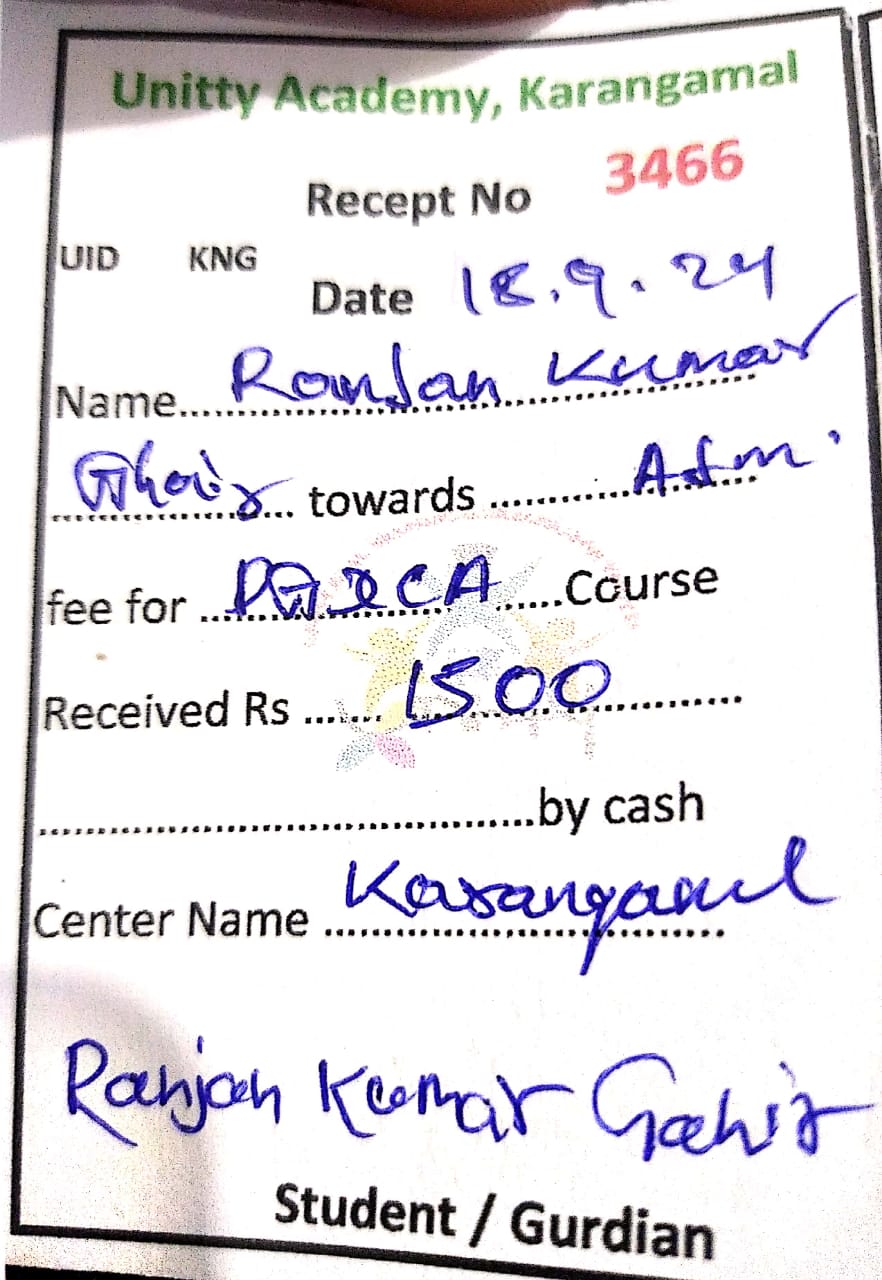 Unitty Academy, Karangamal
Recept No 3466
UID KNG
Date 18.9.24
Name.................. Ranjan Kumar
Ghair ............ towards ............ Adm.
fee for ...... PGDCA ......Course
Received Rs ....... 1500 ............
..........................................by cash
Center Name .................. Karangamal
Ranjan Kumar Gahir
Student / Gurdian